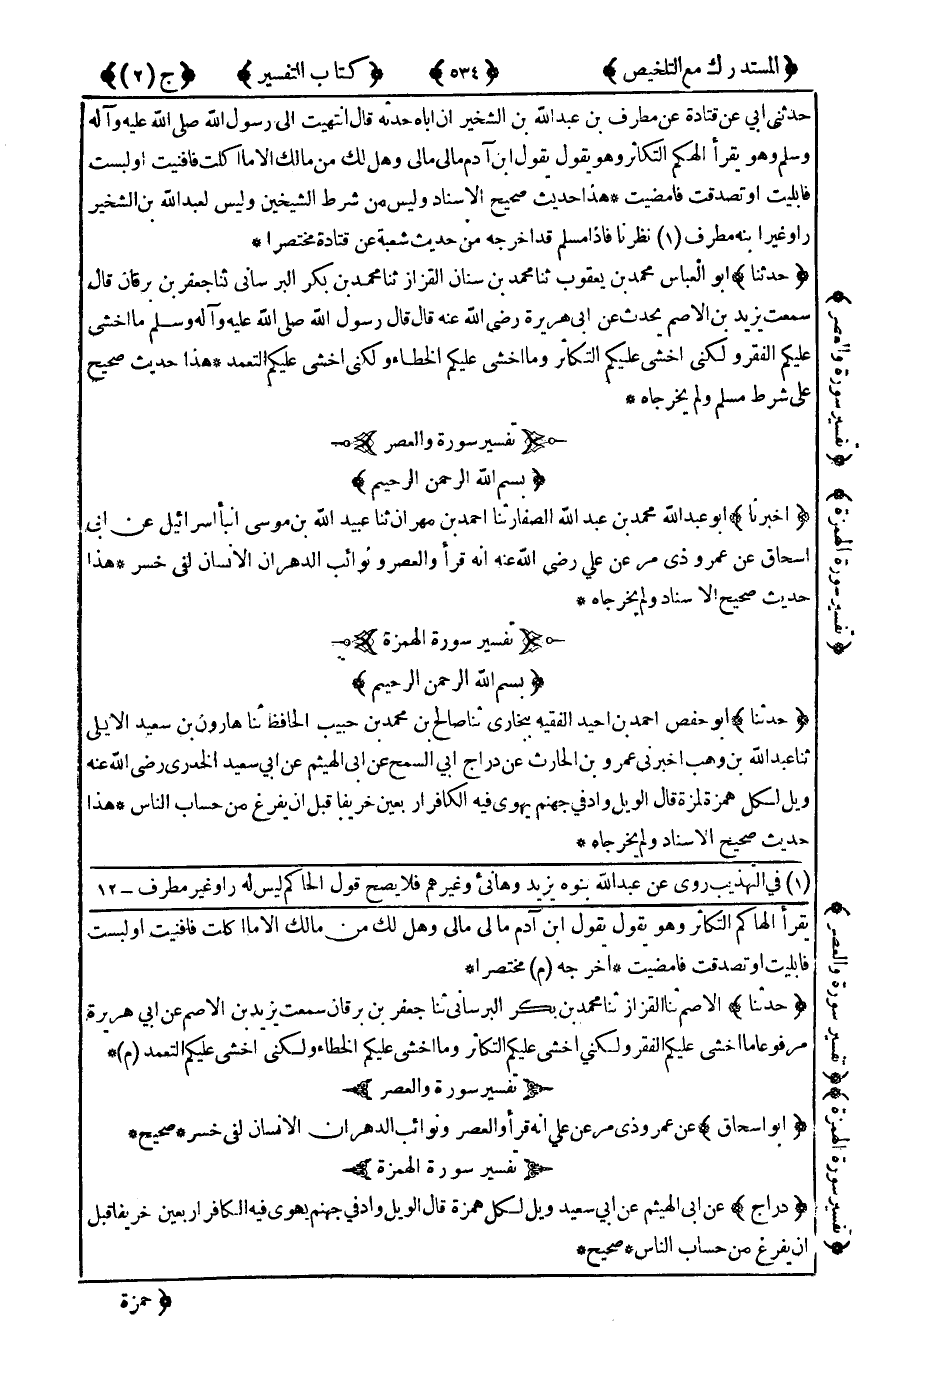 ﴿ المستدرك مع التلخيص ﴾ ﴿ ٥٣٤ ﴾ ﴿ كتاب التفسير ﴾ ﴿ ج (٢) ﴾
حدثنى ابي عن قتادة عن مطرف بن عبد الله بن الشخير ان اباه حدثه قال انتهيت الى رسول الله صلى الله عليه وآله
وسلم وهو يقرأ الهكم التكاثر وهو يقول يقول ابن آدم مالى مالى وهل لك من مالك الا ما اكلت فافنيت او لبست
فابليت او تصدقت فامضيت * هذا حديث صحيح الاسناد وليس من شرط الشيخين وليس لعبد الله بن الشخير
راو غير ابنه مطرف (١) نظرنا فاذا مسلم قد اخرجه من حديث شعبة عن قتادة مختصرا *
﴿ حدثنا ﴾ ابو العباس محمد بن يعقوب ثنا محمد بن سنان القزاز ثنا محمد بن بكر البرسانى ثنا جعفر بن برقان قال
سمعت يزيد بن الاصم يحدث عن ابى هريرة رضى الله عنه قال قال رسول الله صلى الله عليه وآله وسلم ما اخشى
عليكم الفقر ولكنى اخشى عليكم التكاثر وما اخشى عليكم الخطاء ولكنى اخشى عليكم التعمد * هذا حديث صحيح
على شرط مسلم ولم يخرجاه *
تفسير سورة والعصر
﴿ بسم الله الرحمن الرحيم ﴾
﴿ اخبرنا ﴾ ابو عبد الله محمد بن عبد الله الصفار ثنا احمد بن مهران ثنا عبيد الله بن موسى انبأ اسرائيل عن ابى
اسحاق عن عمرو ذى مر عن علي رضى الله عنه انه قرأ والعصر و نوائب الدهر ان الانسان لفى خسر * هذا
حديث صحيح الاسناد ولم يخرجاه *
تفسير سورة الهمزة
﴿ بسم الله الرحمن الرحيم ﴾
﴿ حدثنا ﴾ ابو حفص احمد بن احيد الفقيه ببخارى ثنا صالح بن محمد بن حبيب الحافظ ثنا هارون بن سعيد الايلى
ثنا عبد الله بن وهب اخبرنى عمرو بن الحارث عن دراج ابي السمح عن ابى الهيثم عن ابي سعيد الخدرى رضى الله عنه
ويل لكل همزة لمزة قال الويل واد في جهنم يهوى فيه الكافر اربعين خريفا قبل ان يفرغ من حساب الناس * هذا
حديث صحيح الاسناد ولم يخرجاه *
(١) في التهذيب روى عن عبد الله بنوه يزيد وهانئ وغيرهم فلا يصح قول الحاكم ليس له راو غير مطرف – ١٢
يقرأ الهاكم التكاثر وهو يقول يقول ابن آدم مالى مالى وهل لك من مالك الا ما اكلت فافنيت او لبست
فابليت او تصدقت فامضيت * اخرجه (م) مختصرا *
﴿ حدثنا ﴾ الاصم ثنا القزاز ثنا محمد بن بكر البرسانى ثنا جعفر بن برقان سمعت يزيد بن الاصم عن ابي هريرة
مرفوعا ما اخشى عليكم الفقر ولكني اخشى عليكم التكاثر وما اخشى عليكم الخطاء ولكنى اخشى عليكم التعمد (م) *
تفسير سورة والعصر
﴿ ابو اسحاق ﴾ عن عمرو ذى مر عن علي انه قرأ والعصر ونوائب الدهر ان الانسان لفى خسر * صحيح *
تفسير سورة الهمزة
﴿ دراج ﴾ عن ابى الهيثم عن ابي سعيد ويل لكل همزة قال الويل واد في جهنم يهوى فيه الكافر اربعين خريفا قبل
ان يفرغ من حساب الناس * صحيح *
﴿ تفسير سورة والعصر ﴾
﴿ تفسير سورة الهمزة ﴾
﴿ تفسير سورة والعصر ﴾
﴿ تفسير سورة الهمزة ﴾
﴿ حمزة